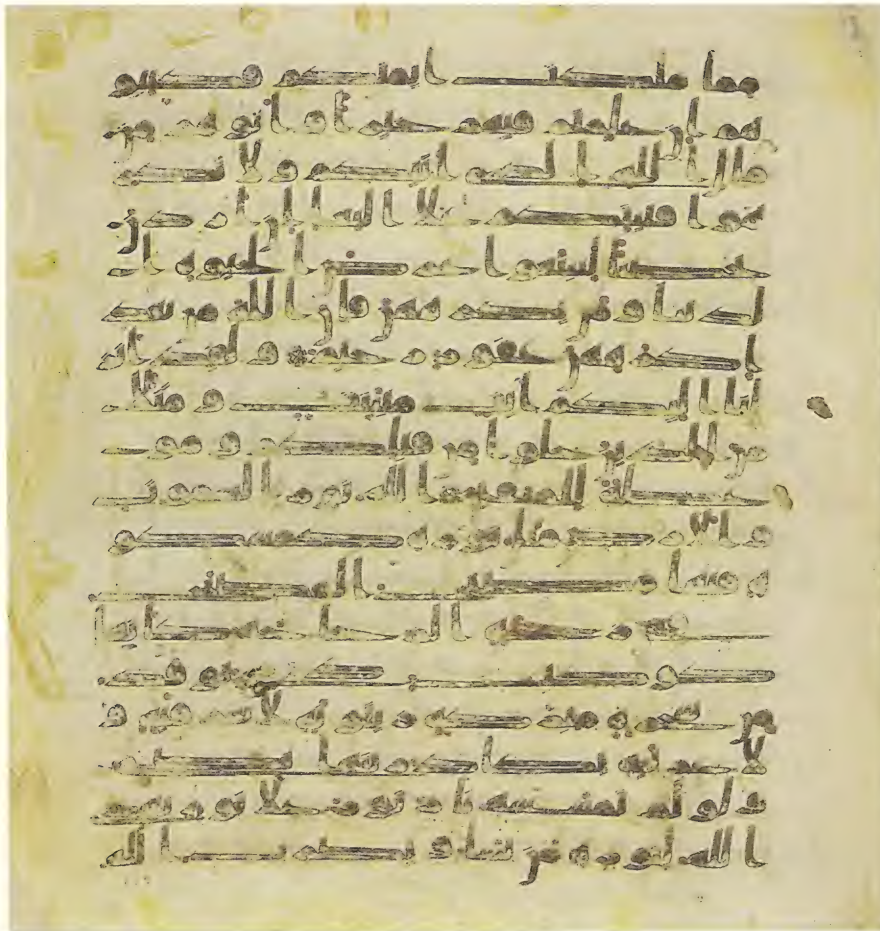 مما ملكت ايمنكم فكتبو
هم ان علمتم فيهم خيرا واتوهم من
مال الله الذي اتيكم ولا تكر
هوا فتيتكم على البغا ان اردن
تحصنا لتبتغوا عرض الحيوة ا
لدنيا ومن يكرههن فان الله من بعد
اكرههن غفور رحيم ولقد انز
لنا اليكم ايت مبينت ومثلا
من الذين خلوا من قبلكم ومو
عظة للمتقين الله نور السموت
والارض مثل نوره كمشكو
ة فيها مصبح المصبح في
زجاجة الزجاجة كانها
كوكب دري يوقد
من شجرة مبركة زيتونة لا شرقية و
لا غربية يكاد زيتها يضي
ولو لم تمسسه نار نور على نور يهدي
الله لنوره من يشا ويضرب الله